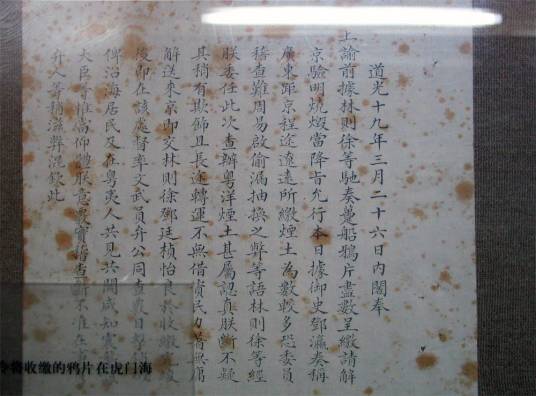 道光十九年三月二十六日內閣奉
上諭前據林則徐等馳奏躉船鴉片盡數呈繳請解
京驗明燒燬當降旨允行本日據御史鄧瀛奏稱
廣東距京程途遼遠所繳煙土為數較多恐委員
稽查難周易啟偷漏抽換之弊等語林則徐等經
朕委任此次查辦粵洋煙土甚屬認真朕斷不疑
其稍有欺飾且長途轉運不無借資民力著無庸
解送來京即交林則徐鄧廷楨怡良於收繳完竣
後即在該處督率文武員弁公同查覈目擊銷
俾沿海居民及在粵夷人共見共聞咸知震
大臣等惟當仰體朕意覈實稽查斷不准在
弁人等稍滋弊混欽此
令將收缴的鸦片在虎门海